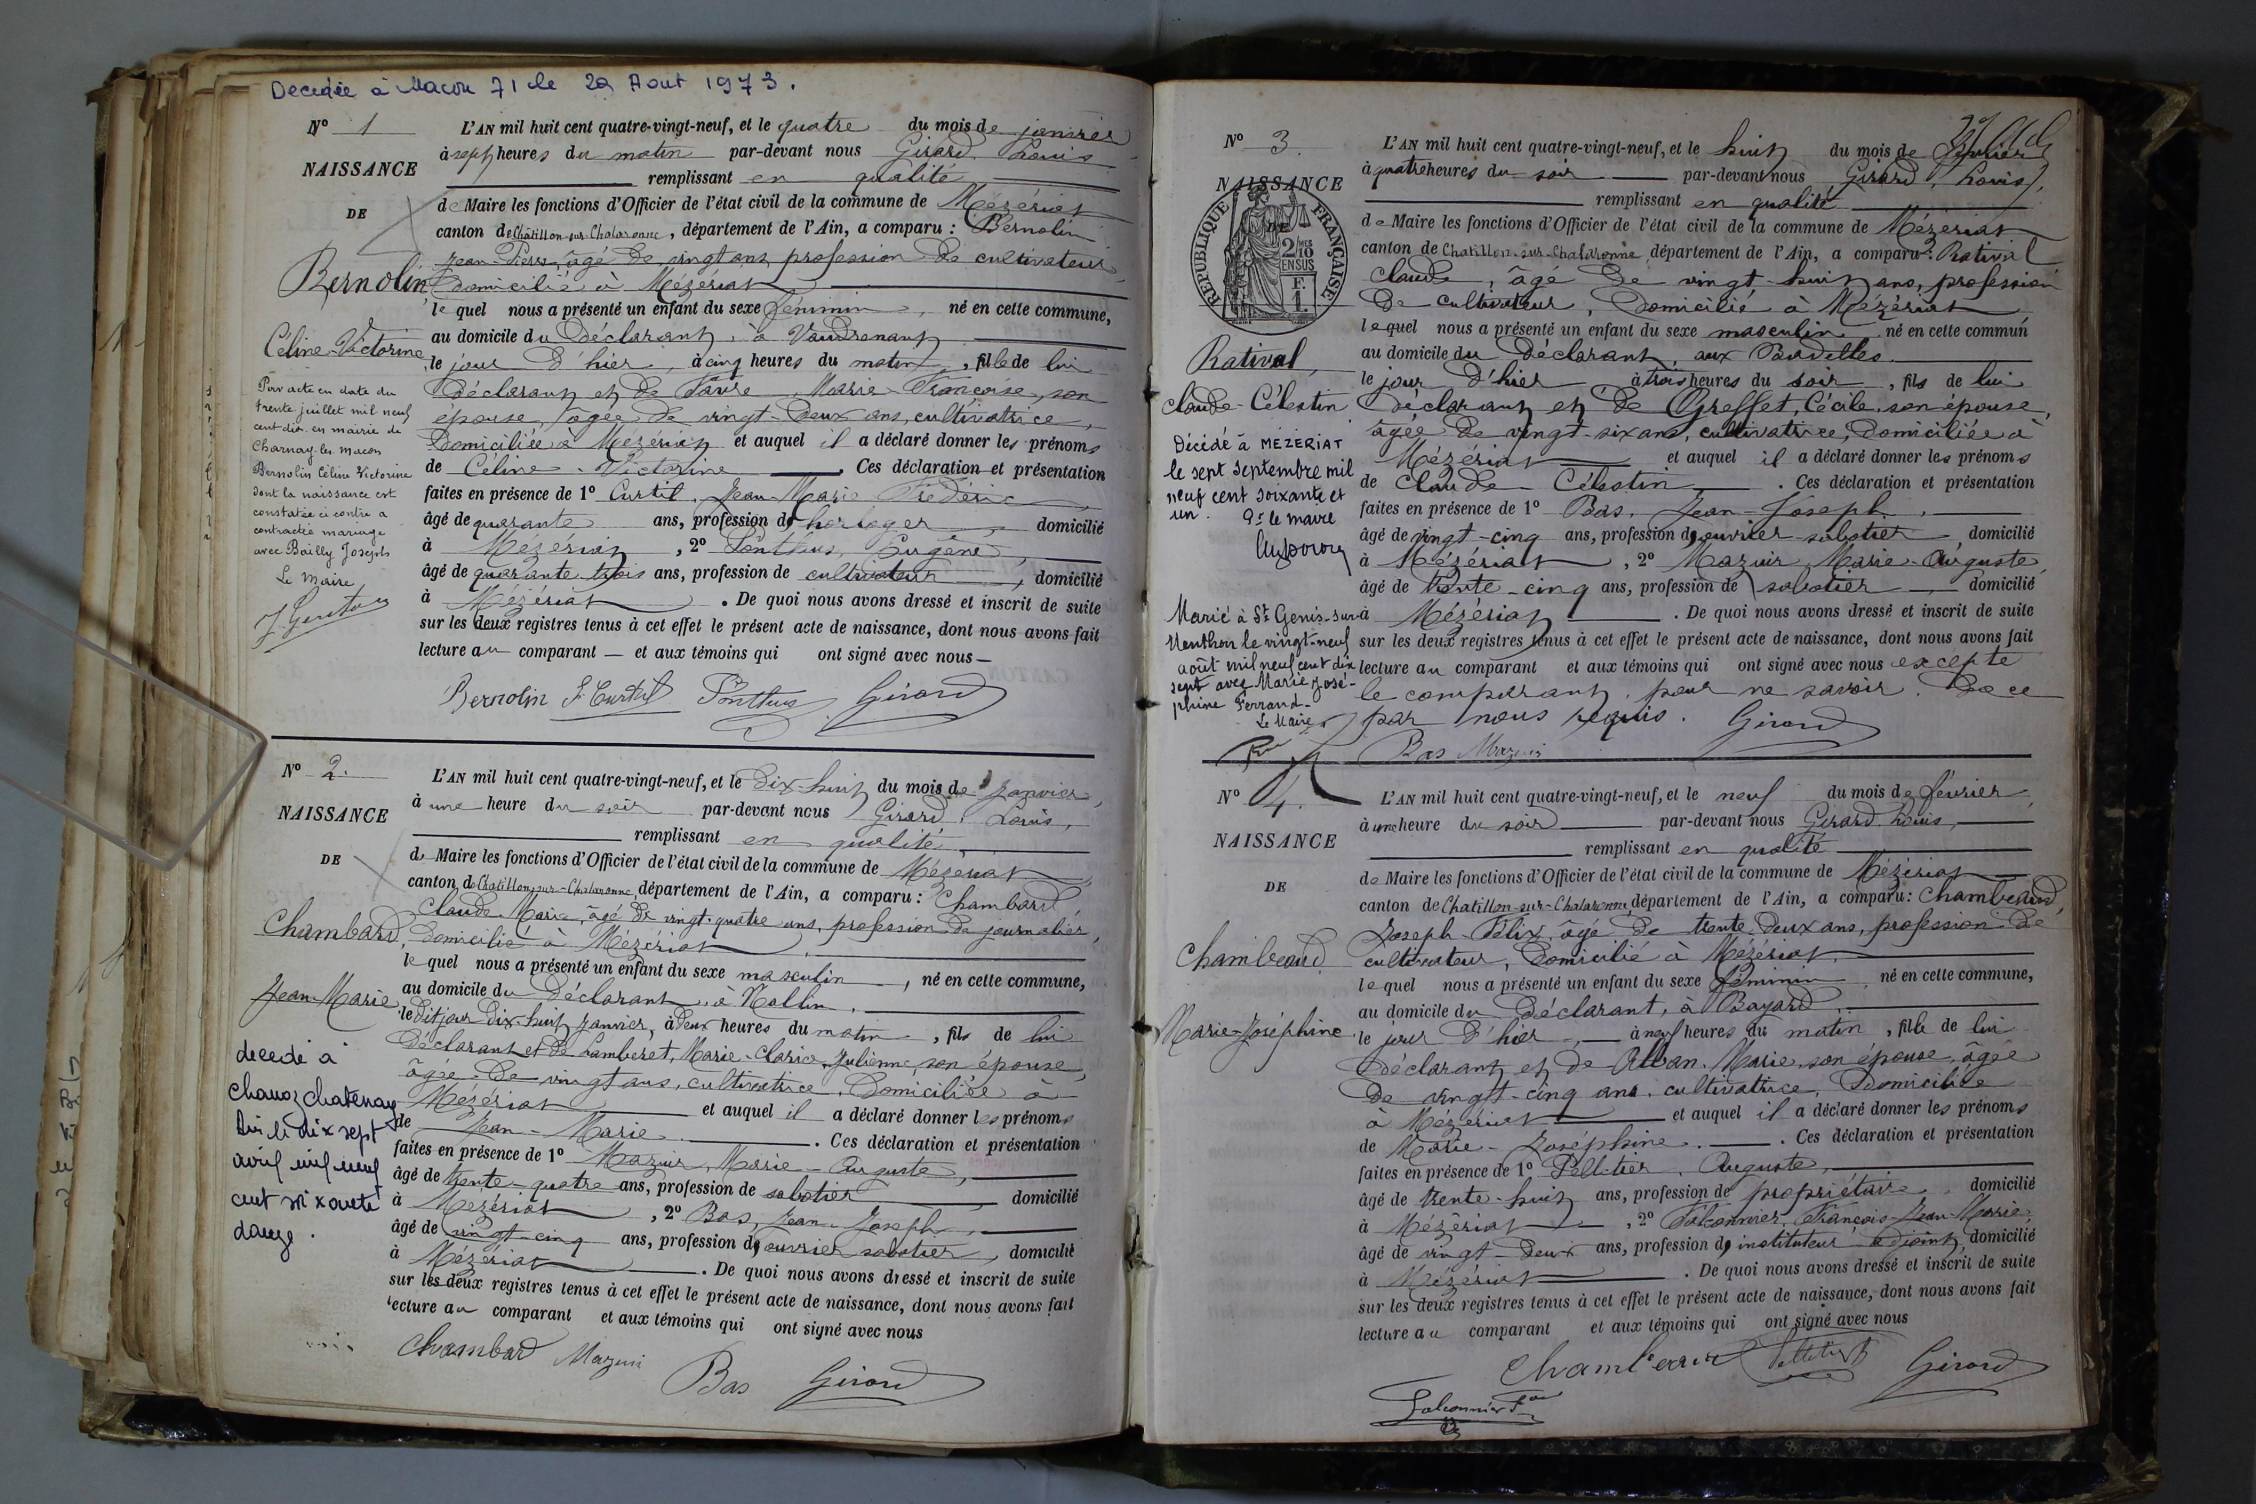 Decedée à Macon 71 le 29 Aout 1973.
N° 1
NAISSANCE
DE
Bernolin
Céline-Victorine
Par acte en date du
trente juillet mil neuf
cent dix en mairie de
Charnay-les-Macon
Bernolin Céline Victorine
dont la naissance est
constatée ci contre a
contracté mariage
avec Bailly Joseph
Le Maire
L'AN mil huit cent quatre-vingt-neuf, et le quatre du mois de janvier
à sept heures du matin par-devant nous Girard, Louis
remplissant en qualité
de Maire les fonctions d'Officier de l'état civil de la commune de Mézériat
canton de Châtillon-sur-Chalaronne, département de l'Ain, a comparu : Bernolin
Jean-Pierre, âgé de vingt ans, profession de cultivateur,
domicilié à Mézériat
lequel nous a présenté un enfant du sexe féminin, né en cette commune,
au domicile du Déclarant, à Vaudrenant
le jour d'hier, à cinq heures du matin, fille de lui
déclarant et de Favre, Marie-Françoise, son
épouse, âgée de vingt-deux ans, cultivatrice,
domiciliée à Mézériat et auquel il a déclaré donner les prénoms
de Céline-Victorine. Ces déclaration et présentation
faites en présence de 1° Curtil, Jean-Marie Frédéric,
âgé de quarante ans, profession de horloger, domicilié
à Mézériat, 2° Ponthus, Eugène,
âgé de quarante-trois ans, profession de cultivateur, domicilié
à Mézériat. De quoi nous avons dressé et inscrit de suite
sur les deux registres tenus à cet effet le présent acte de naissance, dont nous avons fait
lecture au comparant — et aux témoins qui ont signé avec nous —
Bernolin J. Curtil Ponthus Girard
N° 2.
NAISSANCE
DE
Chambard,
Jean-Marie
decedé à
chanoz chatenay
Ain le dix sept
avril mil neuf
cent soixante
douze.
L'AN mil huit cent quatre-vingt-neuf, et le dix-huit du mois de Janvier,
à une heure du soir par-devant nous Girard, Louis,
remplissant en qualité
de Maire les fonctions d'Officier de l'état civil de la commune de Mézériat
canton de Chatillon-sur-Chalaronne, département de l'Ain, a comparu : Chambard
Claude-Marie, âgé de vingt-quatre ans, profession de journalier,
domicilié à Mézériat
lequel nous a présenté un enfant du sexe masculin, né en cette commune,
au domicile du Déclarant, à
le dit jour dix-huit Janvier, à deux heures du matin, fils de lui
déclarant et de Lamberet, Marie-Clarice-Julienne, son épouse,
âgée de vingt ans, cultivatrice, domiciliée à
Mézériat et auquel il a déclaré donner les prénoms
de Jean-Marie. Ces déclaration et présentation
faites en présence de 1° Mazuir, Marie-Auguste,
âgé de trente-quatre ans, profession de sabotier, domicilié
à Mézériat, 2° Bas, Jean-Joseph,
âgé de vingt-cinq ans, profession d'ouvrier sabotier, domicilié
à Mézériat. De quoi nous avons dressé et inscrit de suite
sur les deux registres tenus à cet effet le présent acte de naissance, dont nous avons fait
lecture au comparant et aux témoins qui ont signé avec nous
Chambard Mazuir Bas Girard
N° 3.
NAISSANCE
DE
RÉPUBLIQUE FRANÇAISE
2/10 EN SUS
F.
1.
Rativel,
Claude-Célestin
Décédé à MEZERIAT
le sept septembre mil
neuf cent soixante et
un.
Pr le maire
Marié à St Genis-sur-
Menthon le vingt-neuf
août mil neuf cent dix
sept avec Marie José-
phine Ferrand-
Le Maire
L'AN mil huit cent quatre-vingt-neuf, et le huit du mois de Février
à quatre heures du soir par-devant nous Girard, Louis,
remplissant en qualité
de Maire les fonctions d'Officier de l'état civil de la commune de Mézériat
canton de Chatillon-sur-Chalaronne, département de l'Ain, a comparu : Rativel
Claude, âgé de vingt-huit ans, profession
de cultivateur, domicilié à Mézériat
lequel nous a présenté un enfant du sexe masculin né en cette commun
au domicile du Déclarant, aux
le jour d'hier à trois heures du soir, fils de lui
déclarant et de Greffet, Cécile, son épouse,
âgée de vingt-six ans, cultivatrice, domiciliée à
Mézériat et auquel il a déclaré donner les prénoms
de Claude-Célestin. Ces déclaration et présentation
faites en présence de 1° Bas, Jean-Joseph,
âgé de vingt-cinq ans, profession d'ouvrier-sabotier, domicilié
à Mézériat, 2° Mazuir, Marie-Auguste,
âgé de trente-cinq ans, profession de sabotier, domicilié
à Mézériat. De quoi nous avons dressé et inscrit de suite
sur les deux registres tenus à cet effet le présent acte de naissance, dont nous avons fait
lecture au comparant et aux témoins qui ont signé avec nous excepté
le comparant, pour ne savoir, de ce
par nous requis. Girard
Bas Mazuir
N° 4.
NAISSANCE
DE
Chambeaud
Marie-Joséphine
L'AN mil huit cent quatre-vingt-neuf, et le neuf du mois de février,
à une heure du soir par-devant nous Girard Louis,
remplissant en qualité
de Maire les fonctions d'Officier de l'état civil de la commune de Mézériat
canton de Chatillon-sur-Chalaronne, département de l'Ain, a comparu : Chambeaud,
Joseph-Félix, âgé de trente-deux ans, profession de
cultivateur, domicilié à Mézériat,
lequel nous a présenté un enfant du sexe féminin né en cette commune,
au domicile du Déclarant, à Bayard,
le jour d'hier, à neuf heures du matin, fille de lui
déclarant et de Alban, Marie, son épouse, âgée
de vingt-cinq ans, cultivatrice, domiciliée
à Mézériat et auquel il a déclaré donner les prénoms
de Marie-Joséphine. Ces déclaration et présentation
faites en présence de 1° Pelletier, Auguste,
âgé de trente-huit ans, profession de propriétaire, domicilié
à Mézériat, 2° Falconnier, François-Jean-Marie
âgé de vingt-deux ans, profession d'instituteur adjoint, domicilié
à Mézériat. De quoi nous avons dressé et inscrit de suite
sur les deux registres tenus à cet effet le présent acte de naissance, dont nous avons fait
lecture au comparant et aux témoins qui ont signé avec nous
Chambeaud Pelletier Girard
Falconnier